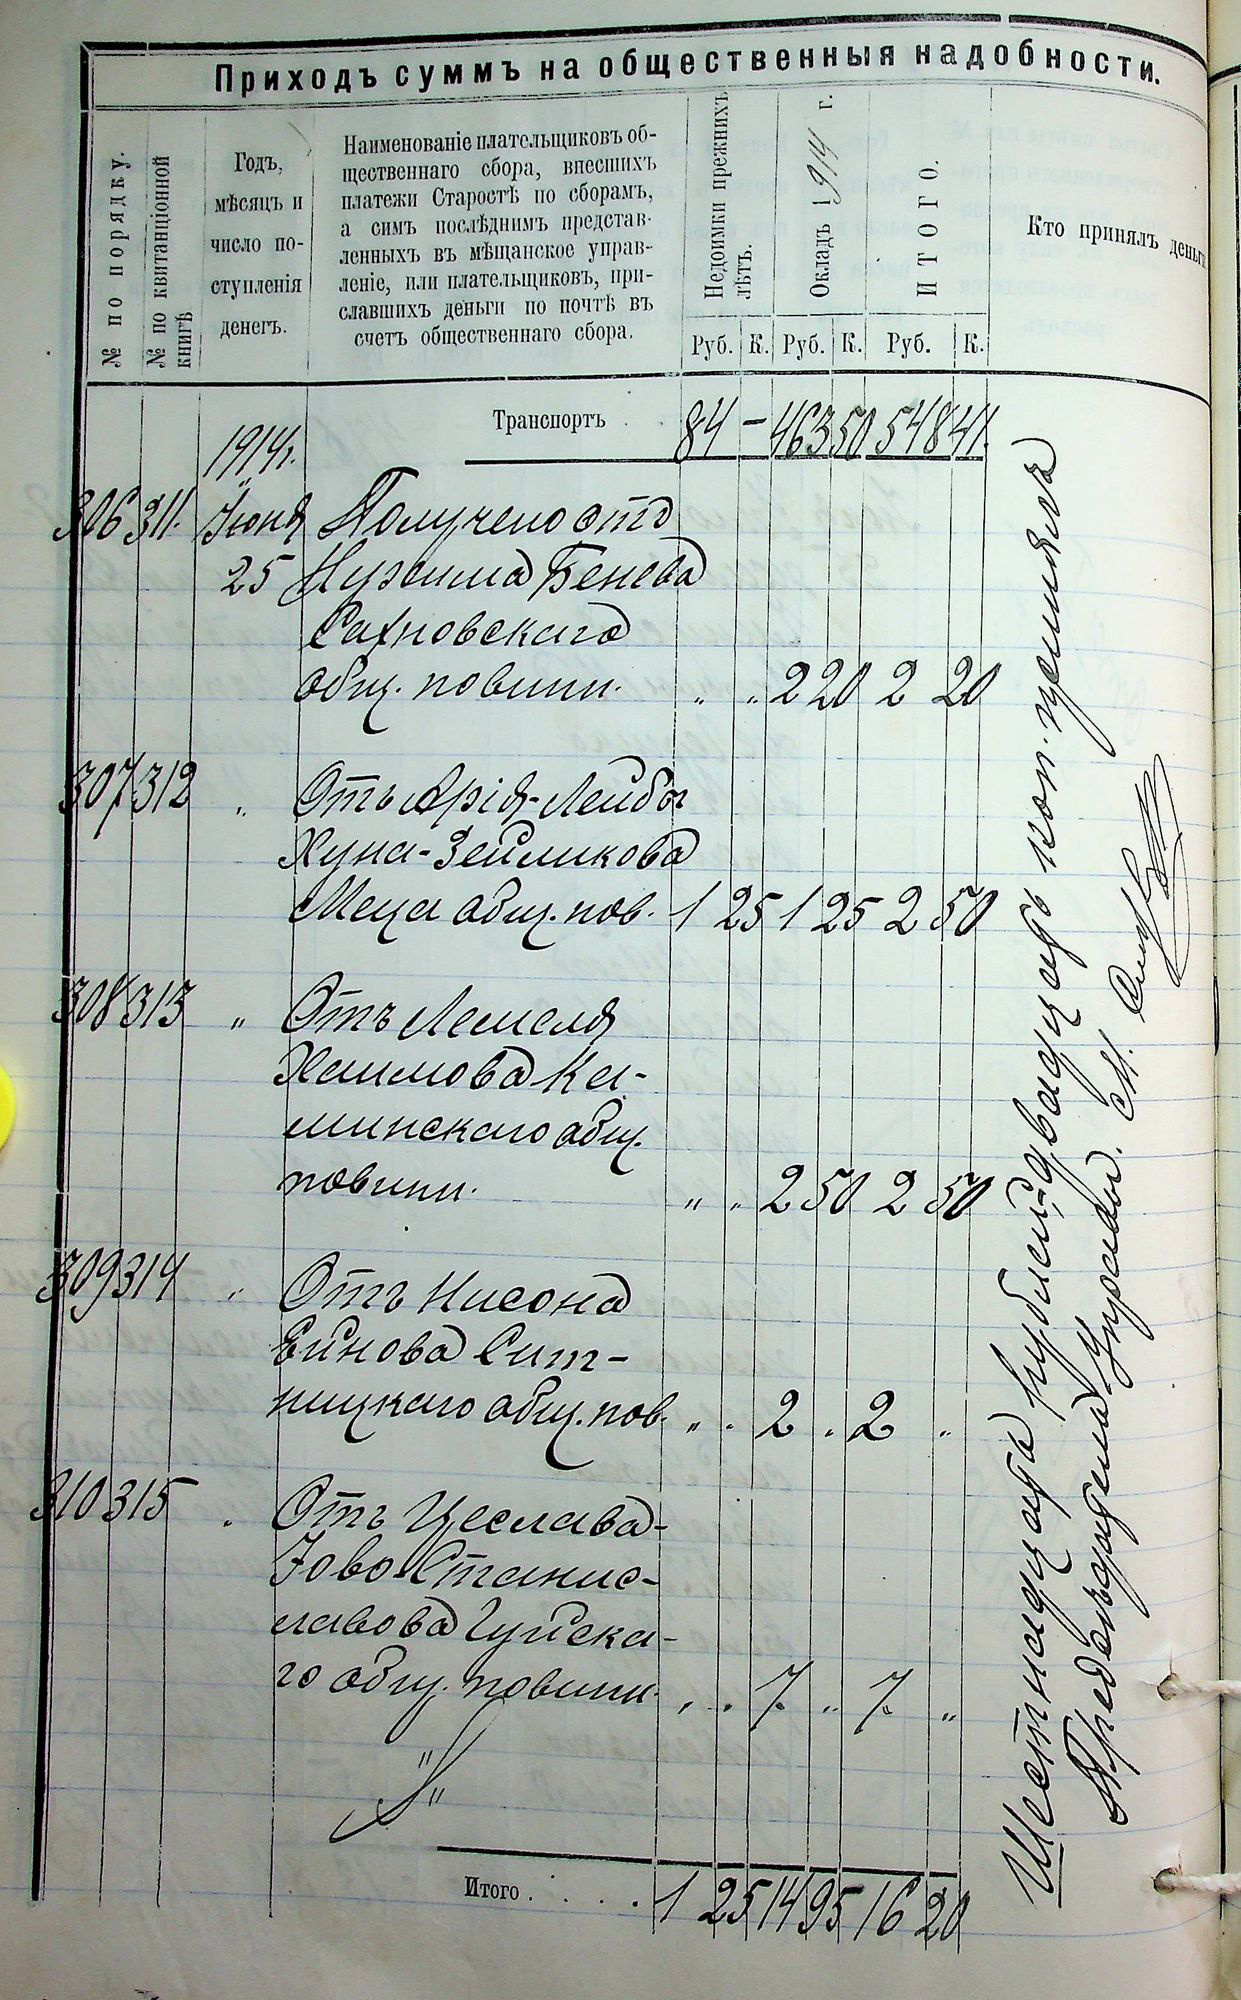 Приходъ суммъ на общественныя надобности.
№ по порядку.
№ по квитанціонной
книгѣ
Годъ,
мѣсяцъ и
число по-
ступленія
денегъ.
Наименованіе плательщиковъ об-
щественнаго сбора, внесшихъ
платежи Старостѣ по сборамъ,
а симъ послѣднимъ представ-
ленныхъ въ мѣщанское управ-
леніе, или плательщиковъ, при-
славшихъ деньги по почтѣ въ
счетъ общественнаго сбора.
Недоимки прежнихъ
лѣтъ.
Окладъ 1914 г.
ИТОГО.
Кто принялъ деньги
Руб. К. Руб. К. Руб. К.
Транспортъ . . 84 – 463 50 548 41.
1914 г.
306 311. Іюня Получено отъ
25 Нухима Бенева
Сахновскаго
общ. повинн. " " 2 20 2 20
307 312 " Отъ Арія-Лейбы
Хуна-Зеймикова
Меца общ. пов. 1 25 1 25 2 50
308 313 " Отъ Лемеля
Хаимова Ка-
минскаго общ.
повинн. " " 2 50 2 50
309 314 " Отъ Нисона
Ейнова Сит-
ницкаго общ. пов. " " 2 " 2 "
310 315 " Отъ Цеслава-
Станис-
лавова Гуйска-
го общ. повинн. " " 7. " 7. "
Итого . . . . . 1 25 14 95 16 20
Шестнадцать рублей двадцать коп. принялъ
Предсѣдатель Управы. М.